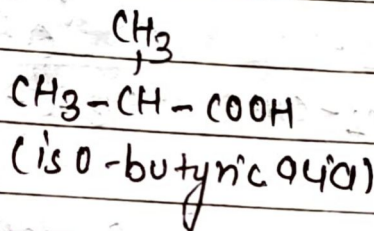 CH3
CH3-CH-COOH
(iso-butyric acid)